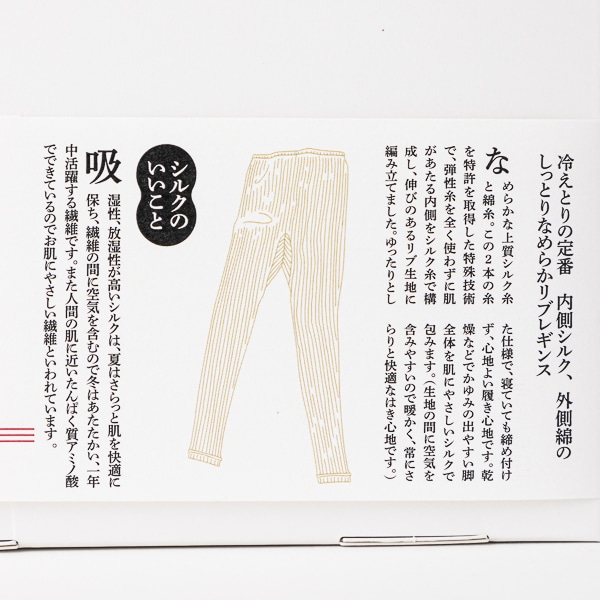 冷えとりの定番　内側シルク、外側綿の
しっとりなめらかリブレギンス
なめらかな上質シルク糸
と綿糸。この2本の糸
を特許を取得した特殊技術
で、弾性糸を全く使わずに肌
があたる内側をシルク糸で構
成し、伸びのあるリブ生地に
編み立てました。ゆったりとし
た仕様で、寝ていても締め付け
ず、心地よい履き心地です。乾
燥などでかゆみの出やすい脚
全体を肌にやさしいシルクで
包みます。（生地の間に空気を
含みやすいので暖かく、常にさ
らりと快適なはき心地です。）
シルクの
いいこと
吸湿性、放湿性が高いシルクは、夏はさらっと肌を快適に
保ち、繊維の間に空気を含むので冬はあたたかい、一年
中活躍する繊維です。また人間の肌に近いたんぱく質アミノ酸
でできているのでお肌にやさしい繊維といわれています。